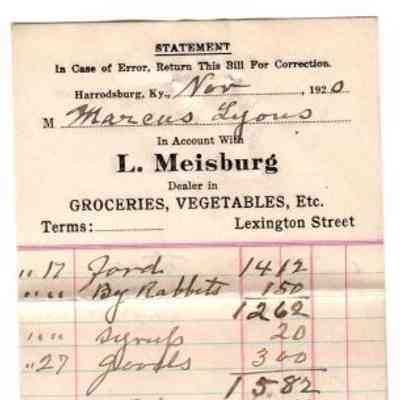 STATEMENT
In Case of Error, Return This Bill For Correction.
Harrodsburg, Ky., Nov , 1920
M Marcus Lyons
In Account With
L. Meisburg
Dealer in
GROCERIES, VEGETABLES, Etc.
Terms: Lexington Street
" 17 Ford 14 12
" " By Rabbits 1 50
12 62
" " Syrup 20
" 27 goods 3 00
15.82